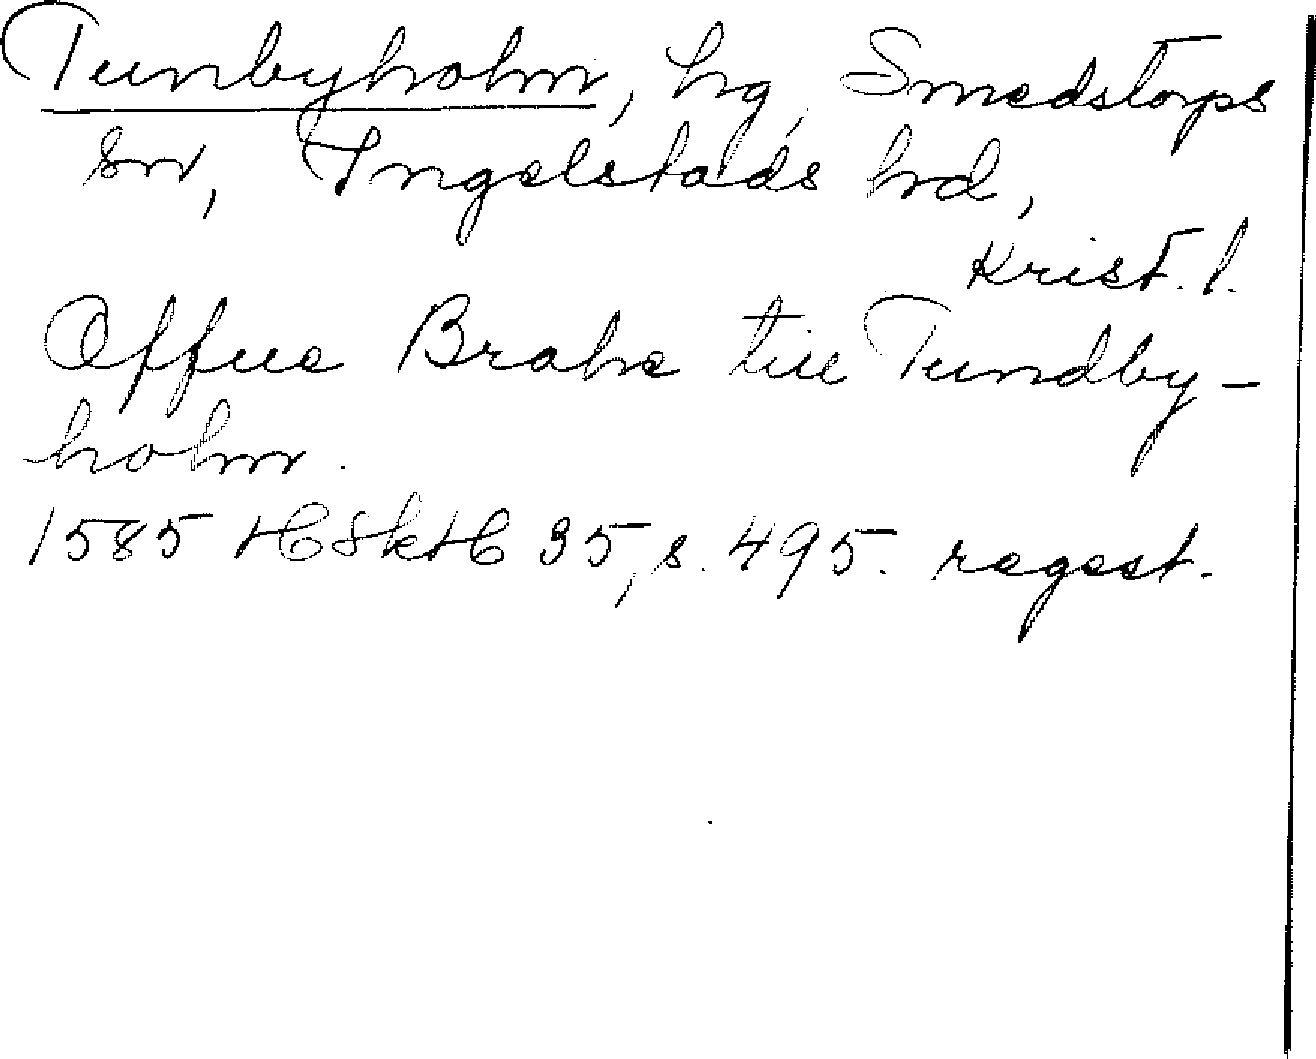 Tunbyholm, hg, Smedstorps
sn, Ingelstads hd,
Krist. l.
Offue Brahe till Tundby-
holm.
1585 HSkH 35, s. 495. regest.